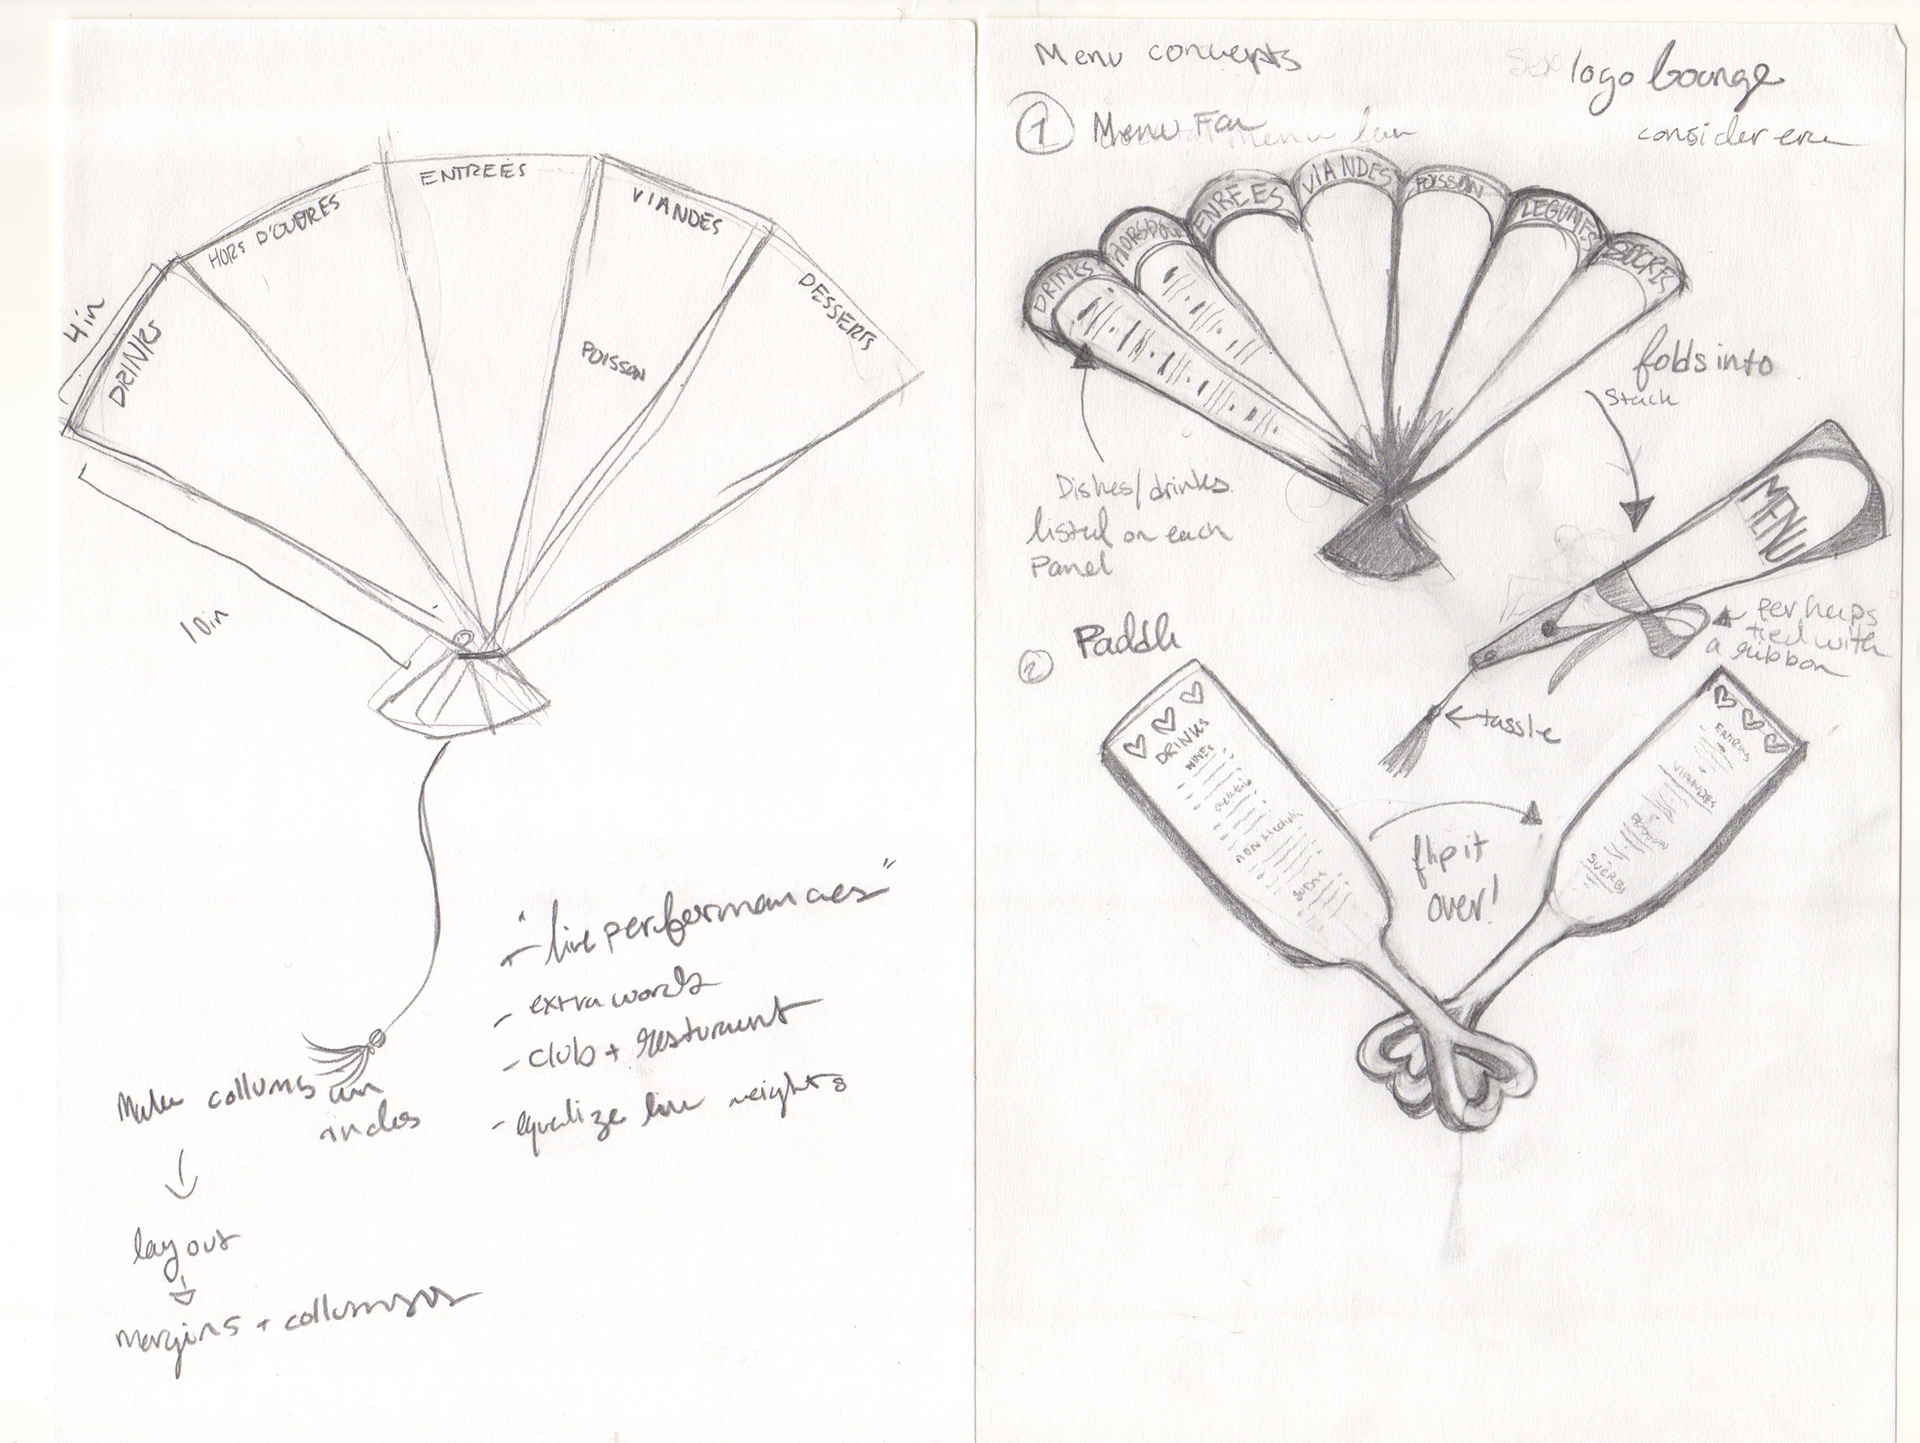 4 in
DRINKS
HORS D'OUERES
ENTREES
VIANDES
POISSON
DESSERTS
10in
"live performances"
- extra words
- club + resturaunt
- equalize line weights
Make collums
indes
layout
margins + collumsas
Menu concepts
logo lounge
consider
1 Menu Fan
DRINKS
HORSDOU
ENREES
VIANDES
POISSON
LEGUMES
SUCRES
folds into
Stack
Dishes/drinks
listed on each
Panel
MENU
perhaps
tied with
a ribbon
tassle
2 Paddle
DRINKS
WINES
non alcoholic
flip it
over!
VIANDES
POISSON
SUCRES